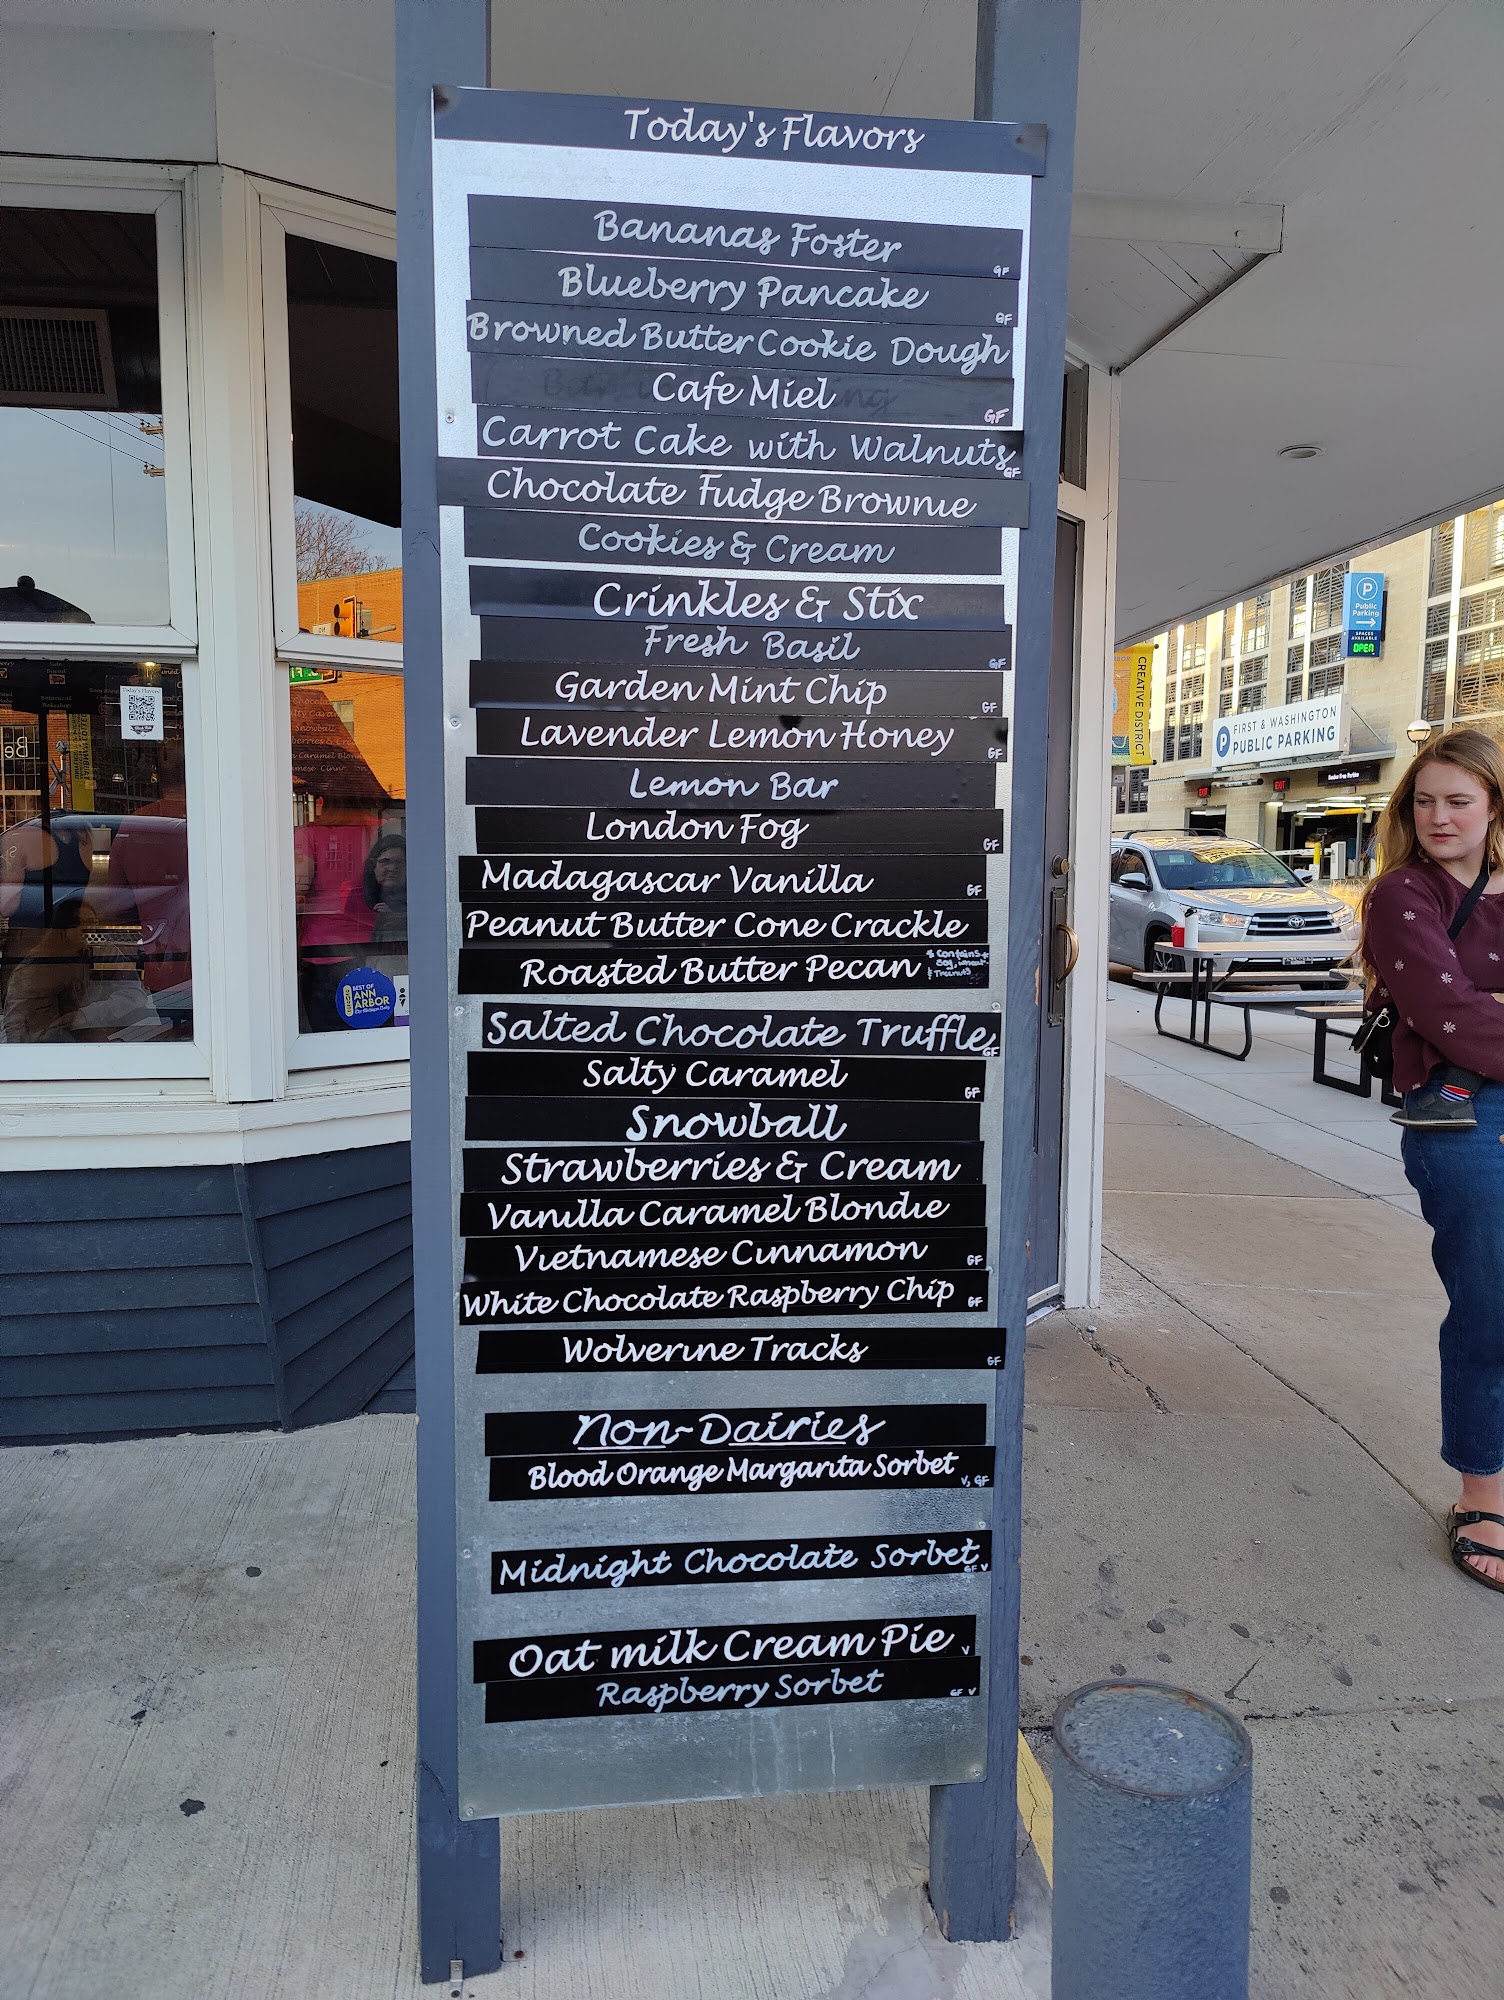 Today's Flavors
Bananas Foster GF
Blueberry Pancake GF
Browned Butter Cookie Dough
Cafe Miel GF
Carrot Cake with Walnuts GF
Chocolate Fudge Brownie
Cookies & Cream
Crinkles & Stix
Fresh Basil GF
Garden Mint Chip GF
Lavender Lemon Honey GF
Lemon Bar
London Fog GF
Madagascar Vanilla GF
Peanut Butter Cone Crackle
Roasted Butter Pecan
Salted Chocolate Truffle GF
Salty Caramel GF
Snowball
Strawberries & Cream
Vanilla Caramel Blondie
Vietnamese Cinnamon GF
White Chocolate Raspberry Chip GF
Wolverine Tracks GF
Non-Dairies
Blood Orange Margarita Sorbet V, GF
Midnight Chocolate Sorbet GF V
Oat milk Cream Pie V
Raspberry Sorbet GF V
Today's Flavors
BEST OF
ANN
ARBOR
CREATIVE DISTRICT
P
Public
Parking
SPACES
AVAILABLE
OPEN
P
FIRST & WASHINGTON
PUBLIC PARKING
EXIT
EXIT